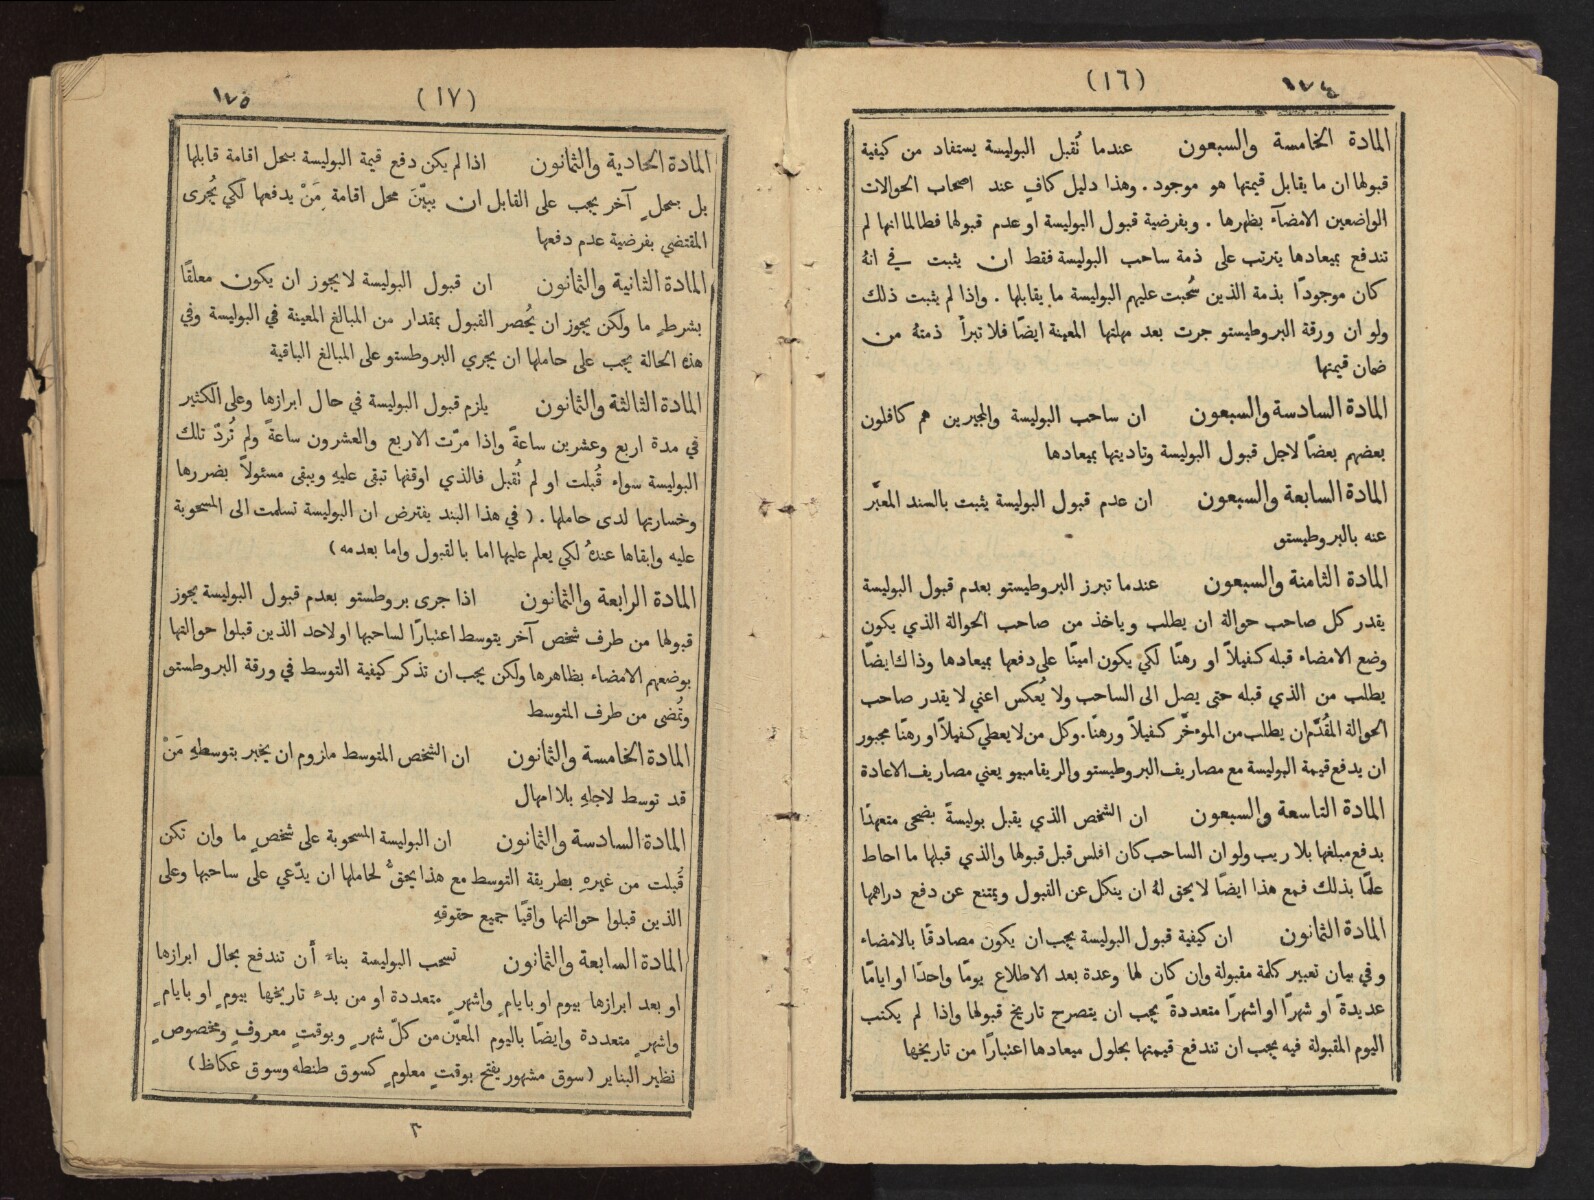 (١٦)
١٧٤
المادة الخامسة والسبعون عندما تُقبل البوليسة يستفاد من كيفية
قبولها ان ما يقابل قيمتها هو موجود. وهذا دليل كافٍ عند اصحاب الحوالات
الواضعين الامضآء بظهرها. وبفرضية قبول البوليسة او عدم قبولها فطالما انها لم
تندفع بميعادها يترتب على ذمة ساحب البوليسة فقط ان يثبت في انهُ
كان موجودًا بذمة الذين سُحبت عليهم البوليسة ما يقابلها. واذا لم يثبت ذلك
ولو ان ورقة البروطيستو جرت بعد مهلتها المعينة ايضًا فلا تبرأ ذمتهُ من
ضمان قيمتها
المادة السادسة والسبعون ان ساحب البوليسة والمجيرين هم كافلون
بعضهم بعضًا لاجل قبول البوليسة وتاديتها بميعادها
المادة السابعة والسبعون ان عدم قبول البوليسة يثبت بالسند المعبَّر
عنه بالبروطيستو
المادة الثامنة والسبعون عندما تبرز البروطيستو بعدم قبول البوليسة
يقدر كل صاحب حوالة ان يطلب وياخذ من صاحب الحوالة الذي يكون
وضع الامضاء قبله كفيلاً او رهنًا لكي يكون امينًا على دفعها بميعادها وذاك ايضًا
يطلب من الذي قبله حتى يصل الى الساحب ولا يُعكس اعني لا يقدر صاحب
الحوالة المقُدَّم ان يطلب من الموءخَّر كفيلاً ورهنًا. وكل من لا يعطي كفيلاً او رهنًا مجبور
ان يدفع قيمة البوليسة مع مصاريف البروطيستو والريقامبيو يعني مصاريف الاعادة
المادة التاسعة والسبعون ان الشخص الذي يقبل بوليسةً يضحى متعهدًا
بدفع مبلغها بلا ريب ولو ان الساحب كان افلس قبل قبولها والذي قبلها ما احاط
علمًا بذلك فمع هذا ايضًا لا يحق لهُ ان ينكل عن القبول ويمتنع عن دفع دراهمها
المادة الثمانون ان كيفية قبول البوليسة يجب ان يكون مصادقًا بالامضاء
وفي بيان تعبير كلمة مقبولة وان كان لها وعدة بعد الاطلاع يومًا واحدًا او ايامًا
عديدةً او شهرًا او اشهرًا متعددةً يجب ان يتصرح تاريخ قبولها واذا لم يكتب
اليوم المقبولة فيه يجب ان تندفع قيمتها بحلول ميعادها اعتبارًا من تاريخها
(١٧)
١٧٥
المادة الحادية والثمانون اذا لم يكن دفع قيمة البوليسة بمحل اقامة قابلها
بل بمحلٍ آخر يجب على القابل ان يبيّنَ محل اقامة مَنْ يدفعها لكي يُجرى
المقتضي بفرضية عدم دفعها
المادة الثانية والثمانون ان قبول البوليسة لا يجوز ان يكون معلقًا
بشرطٍ ما ولكن يجوز ان يُحصر القبول بمقدار من المبالغ المعينة في البوليسة وفي
هذه الحالة يجب على حاملها ان يجري البروطستو على المبالغ الباقية
المادة الثالثة والثمانون يلزم قبول البوليسة في حال ابرازها وعلى الكثير
في مدة اربع وعشرين ساعةً واذا مرّت الاربع والعشرون ساعةً ولم تُردّ تلك
البوليسة سواء قُبلت او لم تُقبل فالذي اوقفها تبقى عليهِ ويبقى مسئولاً بضررها
وخسارتها لدى حاملها. (في هذا البند يفترض ان البوليسة تسلمت الى المسحوبة
عليه وابقاها عندهُ لكي يعلم عليها اما بالقبول واما بعدمه)
المادة الرابعة والثمانون اذا جرى بروطستو بعدم قبول البوليسة يجوز
قبولها من طرف شخص آخر يتوسط اعتبارًا لساحبها او لاحد الذين قبلوا حوالتها
بوضعهم الامضاء بظاهرها ولكن يجب ان تذكر كيفية التوسط في ورقة البروطستو
وتُمضى من طرف المتوسط
المادة الخامسة والثمانون ان الشخص المتوسط ملزوم ان يخبر بتوسطهِ مَنْ
قد توسط لاجلهِ بلا امهال
المادة السادسة والثمانون ان البوليسة المسحوبة على شخصٍ ما وان تكن
قُبلت من غيرهِ بطريقة التوسط مع هذا يحقُّ لحاملها ان يدّعي على ساحبها وعلى
الذين قبلوا حوالتها واقيًا جميع حقوقهِ
المادة السابعة والثمانون تسحب البوليسة بناءً أن تندفع بحال ابرازها
او بعد ابرازها بيوم او بايامٍ واشهرٍ متعددة او من بدءِ تاريخها بيومٍ او بايامٍ
واشهرٍ متعددة وايضًا باليوم المعيَّن من كلّ شهرٍ وبوقتٍ معروفٍ ومخصوصٍ
نظير البناير (سوق مشهور يفتح بوقتٍ معلومٍ كسوق طنطه وسوق عكاظ)
٣